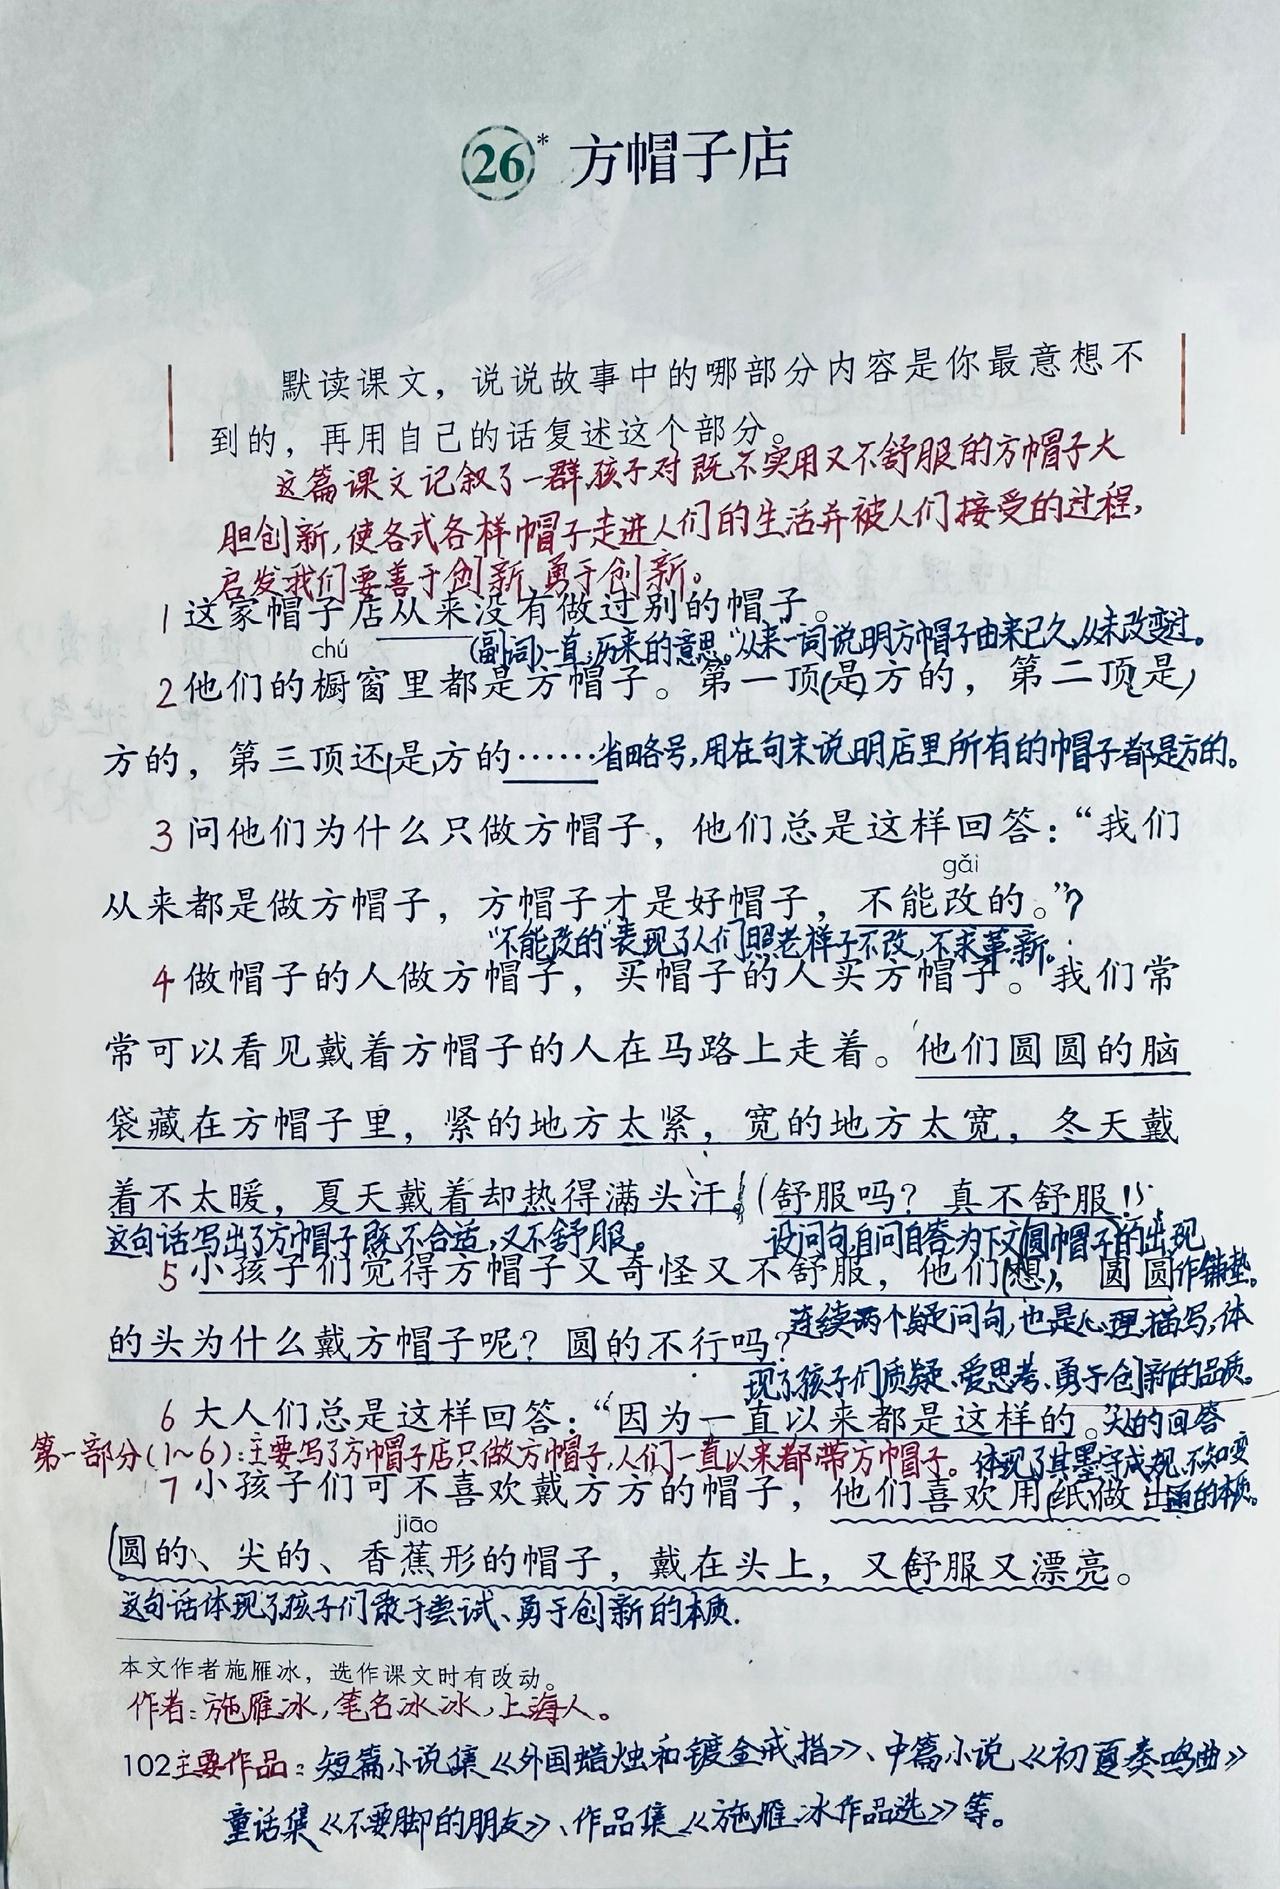 26* 方帽子店
默读课文，说说故事中的哪部分内容是你最意想不
到的，再用自己的话复述这个部分。
这篇课文记叙了一群孩子对既不实用又不舒服的方帽子大
胆创新,使各式各样帽子走进人们的生活并被人们接受的过程,
启发我们要善于创新,勇于创新。
1 这家帽子店从来没有做过别的帽子。
(副词)一直,历来的意思。“从来”一词说明方帽子由来已久,从未改变过。
chú
2 他们的橱窗里都是方帽子。第一顶(是)方的，第二顶(是)
方的，第三顶还(是)方的……省略号,用在句末说明店里所有的帽子都是方的。
3 问他们为什么只做方帽子，他们总是这样回答：“我们
gǎi
从来都是做方帽子，方帽子才是好帽子，不能改的。”?
“不能改的”表现了人们照老样子不改,不求革新。
4 做帽子的人做方帽子，买帽子的人买方帽子。我们常
常可以看见戴着方帽子的人在马路上走着。他们圆圆的脑
袋藏在方帽子里，紧的地方太紧，宽的地方太宽，冬天戴
着不太暖，夏天戴着却热得满头汗。(舒服吗？真不舒服！)
这句话写出了方帽子既不合适,又不舒服。 设问句,自问自答,为下文(圆帽子)的出现
5 小孩子们觉得方帽子又奇怪又不舒服，他们(想)，圆圆作铺垫。
的头为什么戴方帽子呢？圆的不行吗？连续两个疑问句,也是心理描写,体
现了孩子们质疑、爱思考、勇于创新的品质。
6 大人们总是这样回答：“因为一直以来都是这样的。”大人的回答
第一部分(1~6):主要写了方帽子店只做方帽子,人们一直以来都带方帽子。体现了其墨守成规、不知变
7 小孩子们可不喜欢戴方方的帽子，他们喜欢用(纸)做出通的本质。
jiāo
(圆的、尖的、香蕉形的帽子，戴在头上，又(舒服又漂亮。
这句话体现了孩子们敢于尝试、勇于创新的本质.
本文作者施雁冰，选作课文时有改动。
作者:施雁冰,笔名冰冰,上海人。
102 主要作品:短篇小说集《外国蜡烛和镀金戒指》、中篇小说《初夏奏鸣曲》
童话集《不要脚的朋友》、作品集《施雁冰作品选》等。